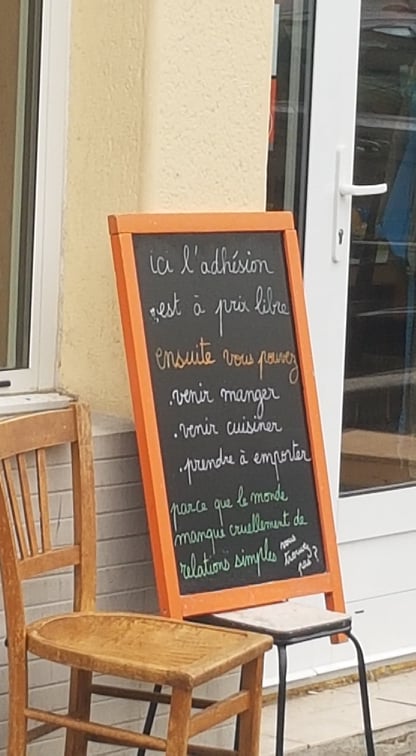 ici l'adhésion
est à prix libre
ensuite vous pouvez
.venir manger
.venir cuisiner
.prendre à emporter
parce que le monde
manque cruellement de
relations simples
vous
trouvez
pas?